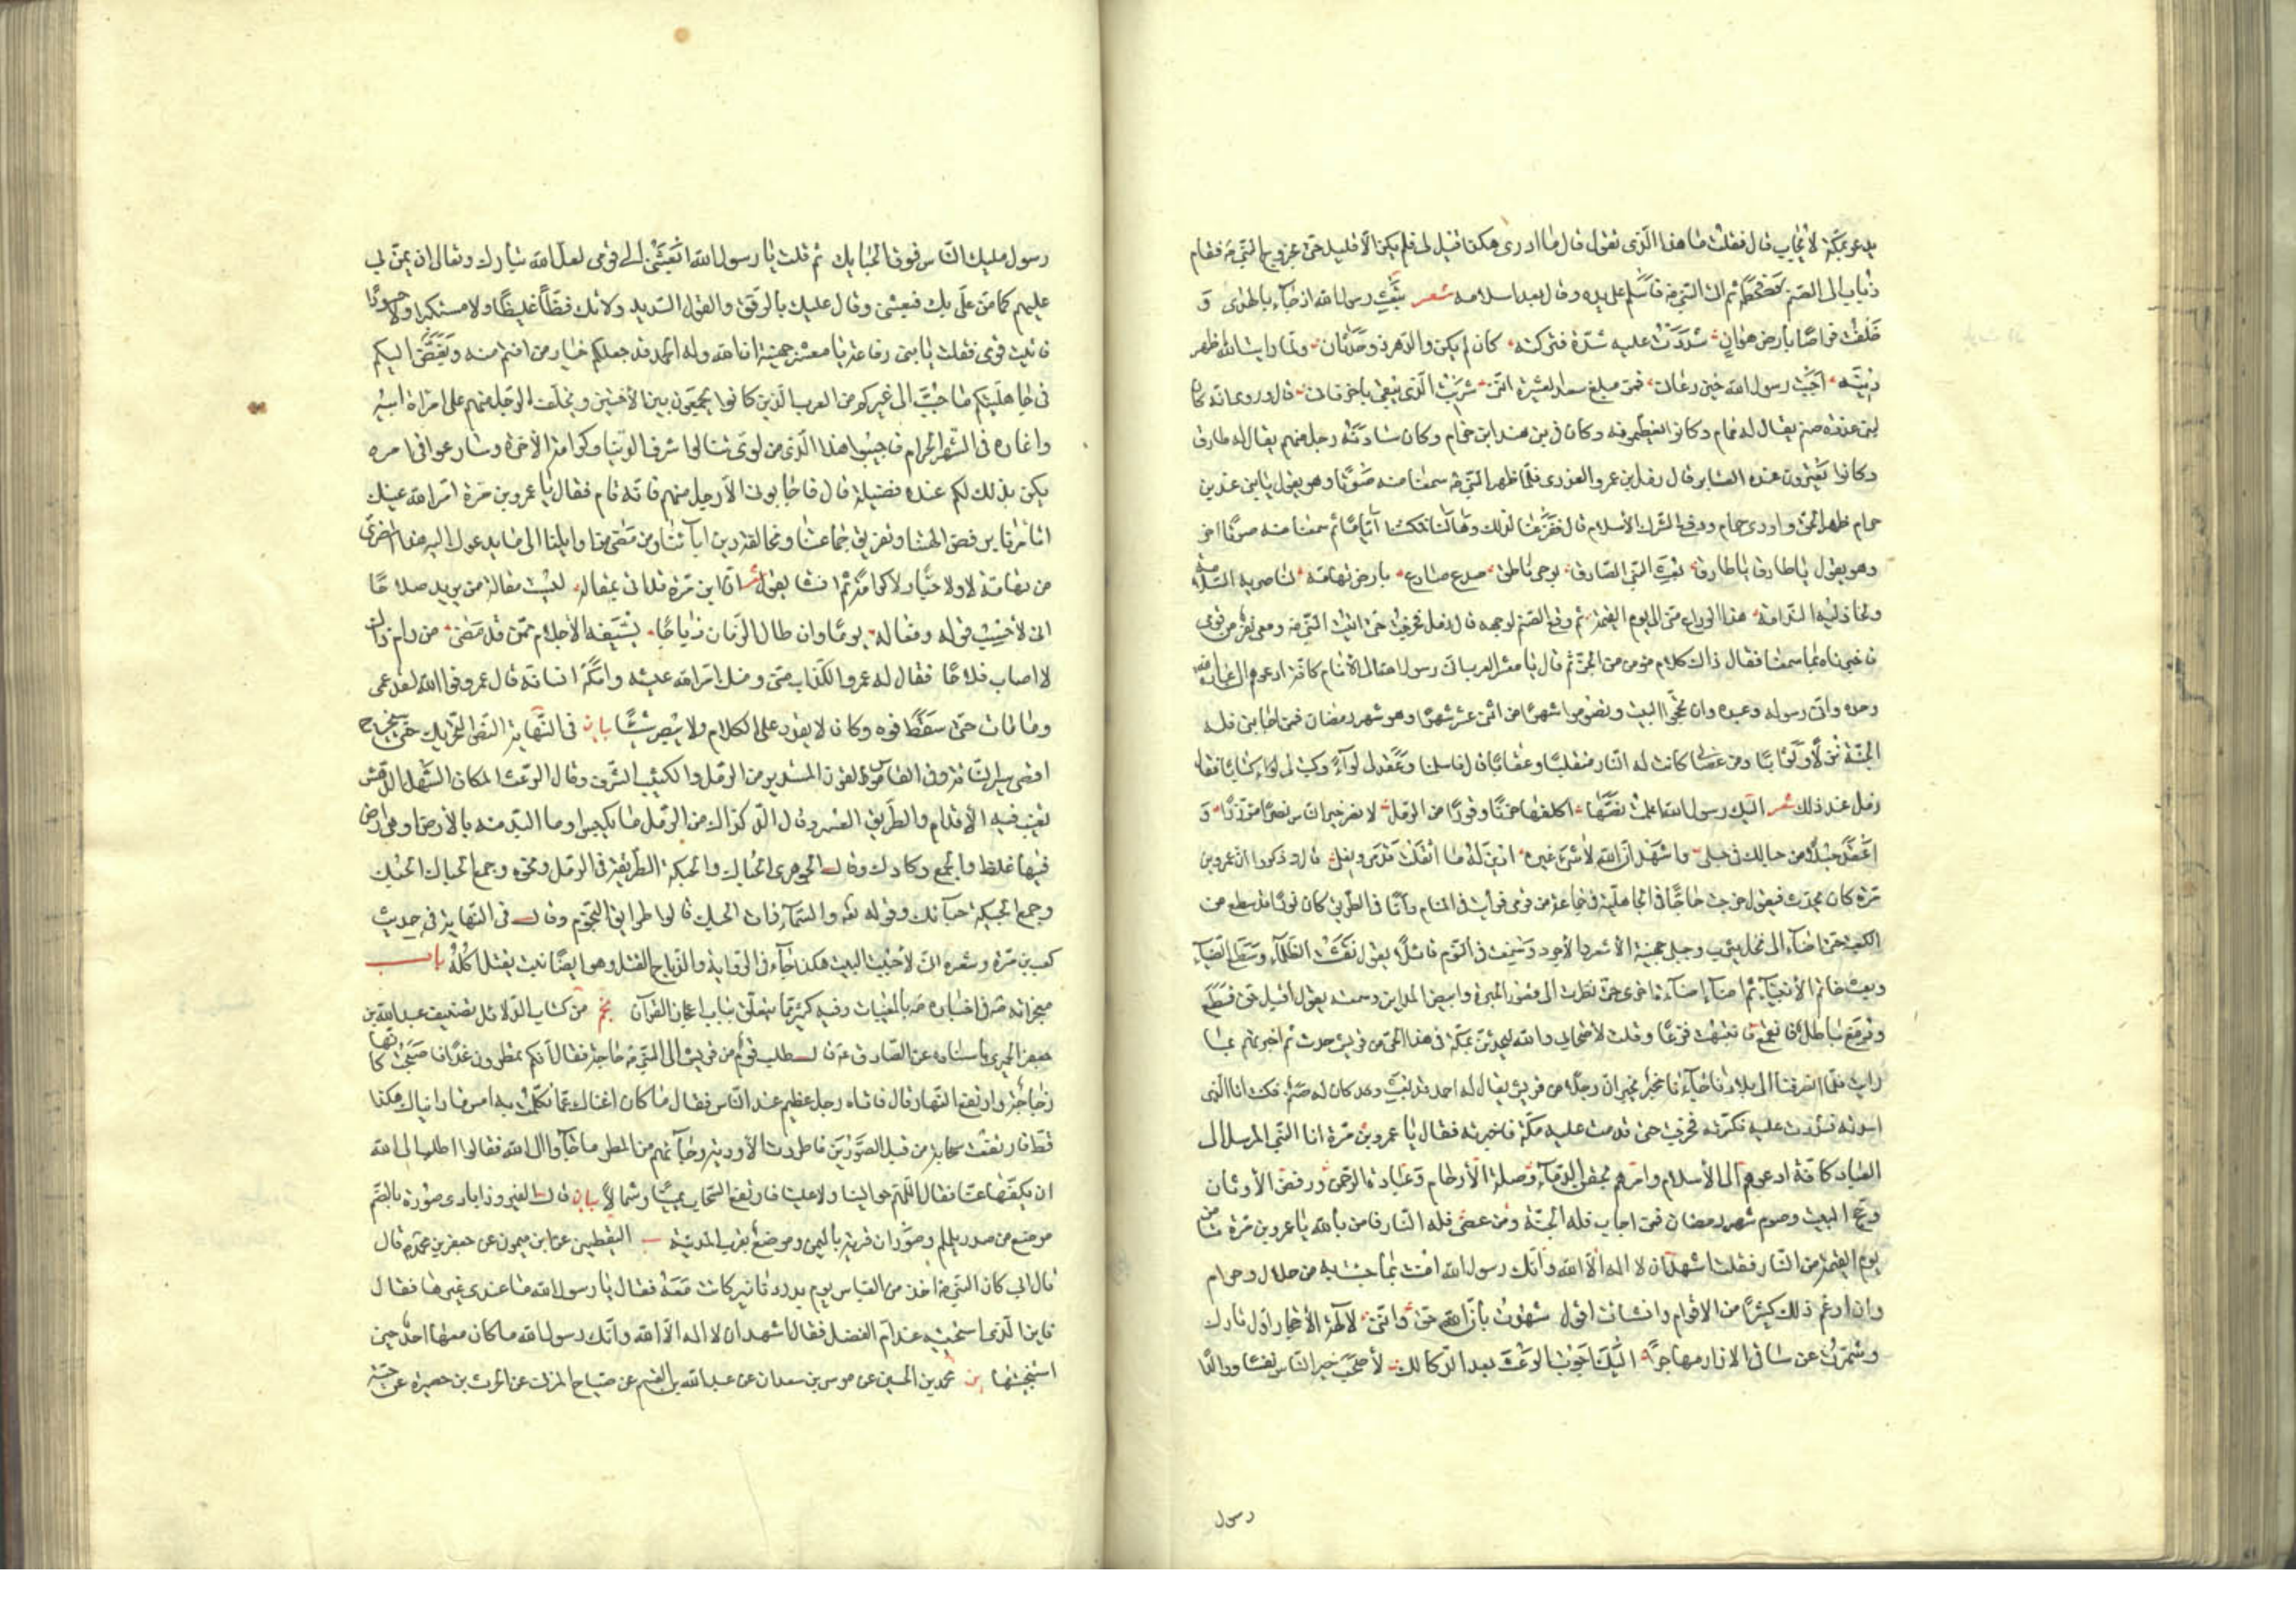 يدعو بمكّة لا يجاب قال فقلت ما هذا الّذى تقول قال ما ادرى هكذا قيل لى فلم يكن الّا قليل حتّى خبر خروج النّبىّ ص فقام
ذباب الى الصّنم فحطّمه ثم اتى النّبىّ ص فاسلم على يده وقال بعد اسلامه شعر تبعت رسول الله اذ جاء بالهدى و
خلّفت فراضا بارض هوان شددت عليه شدّة فتركته كان لم يكن والدّهر ذو حدثان ولمّا رايت الله اظهر
دينه اجبت رسول الله حين دعانى فمن مبلغ سعد العشيرة انّنى شريت الّذى يبقى باخر فانى قال وروى انّه كان
لبنى عذرة صنم يقال له حمام وكانوا يعظّمونه وكان فى بنى هند ابن حرام وكان سادنه رجل منهم يقال له طارق
وكانوا يعترون عنده العتاير قال زمل بن عمرو العذرى فلمّا ظهر النّبىّ ص سمعنا منه صوتا وهو يقول يا بنى هند بن
حرام ظهر الحقّ واودى حمام ودفع الشّرك الاسلام قال ففزعنا لذلك وهالنا فمكثنا ايّاما ثم سمعنا منه صوتا اخر
وهو يقول يا طارق يا طارق بعث النّبىّ الصّادق بوحى ناطق صدع صادع بارض تهامة لناصريه السّلامة
ولخاذليه النّدامة هذا الوداع منّى الى يوم القيمة ثم وقع الصّنم لوجهه قال زمل فخرجت حتّى اتيت النّبىّ ص ومعى نفر من قومى
فاخبرناه بما سمعنا فقال ذاك كلام مؤمن من الجنّ ثم قال يا معشر العرب انّى رسول الله الى الانام كافّة ادعوهم الى عبادة الله
وحده وانّى رسوله وعبده وان تحجّوا البيت وتصوموا شهرا من اثنى عشر شهرا وهو شهر رمضان فمن اجابنى فله
الجنّة نزلا وثوابا ومن عصانى كانت له النّار منقلبا وعقابا قال فاسلمنا وعقد لى لواء وكتب لى كتابا فقال
زمل عند ذلك شعر اليك رسول الله اعملت نصّها اكلّفها حزنا وقوزا من الرّمل لانصر خير النّاس نصرا مؤزّرا و
اعقد حبلا من حبالك فى حبلى واشهد انّ الله لا شىء غيره ادين له ما اثقلت قدمى نعلى قال وذكروا انّ عمرو بن
مرّة كان يحدّث فيقول خرجت حاجّا فى الجاهليّة فى جماعة من قومى فرايت فى المنام وانا فى الطّريق كان نورا قد سطع من
الكعبة حتّى اضاء الى نخل يثرب وجبلى جهينة الاشعر والاجرد وسمعت فى النّوم قائلا يقول تقشّعت الظّلماء وسطع الضّياء
وبعث خاتم الانبياء ثم اضاء اضاءة اخرى حتّى نظرت الى قصور الحيرة وابيض المداين وسمعته يقول اقبل حقّ فسطع
ودمغ باطل فانقمع فانتبهت فزعا وقلت لاصحابى والله ليحدثنّ بمكّة فى هذا الحىّ من قريش حدث ثم اخبرتهم بما
رايت فلمّا انصرفنا الى بلادنا جاءنا مخبر يخبر انّ رجلا من قريش يقال له احمد قد بعث وقد كان لنا صنم فكنت انا الّذى
اسدنه فشددت عليه فكسرته فخرجت حتّى قدمت عليه مكّة فاخبرته فقال يا عمرو بن مرّة انا النّبىّ المرسل الى
العباد كافّة ادعوهم الى الاسلام وامرهم بحقن الدّماء وصلة الارحام وعبادة الرّحمن ورفض الاوثان
وحجّ البيت وصوم شهر رمضان فمن اجاب فله الجنّة ومن عصى فله النّار فامن بالله يا عمرو بن مرّة تامن
يوم القيمة من النّار فقلت اشهد ان لا اله الّا الله وانّك رسول الله امنت بما جئت به من حلال وحرام
وان ارغم ذلك كثيرا من الاقوام وانشات اقول شهدت بانّ الله حقّ وانّنى لآلهة الاحجار اوّل تارك
وشمّرت عن ساقى الازار مهاجرا اليك اجوب الوعث بعد الدّكادك لاصحب خير النّاس نفسا ووالدا
رسول
رسول مليك النّاس فوق الحبائك ثم قلت يا رسول الله ابعثنى الى قومى لعلّ الله تبارك وتعالى ان يمنّ بى
عليهم كما منّ علىّ بك فبعثنى وقال عليك بالرّفق والقول السّديد ولا تك فظّا غليظا ولا مستكبرا ولا حسودا
فاتيت قومى فقلت يا بنى رفاعة يا معشر جهينة انّ الله وله الحمد قد جعلكم خيار من انتم منه وبغّض اليكم
فى جاهليّتكم ما حبّب الى غيركم من العرب الّذين كانوا يجمعون بين الاختين ويخلف الرّجل منهم على امراة ابيه
واغارة فى الشّهر الحرام فاجيبوا هذا الّذى من لوىّ تنالوا شرف الدّنيا وكرامة الاخرة وسارعوا فى امره
يكن بذلك لكم عنده فضيلة قال فاجابونى الّا رجل منهم فانّه قام فقال يا عمرو بن مرّة امرّ الله عيشك
اتامرنا برفض الهتنا وتفريق جماعتنا ومخالفة دين ابائنا ومن مضى من اوايلنا الى ما يدعوك اليه هذا المضرى
من تهامة لا ولا حبّا ولا كرامة ثم انشا يقول شعر انّ ابن مرّة قد اتى بمقالة ليست مقالة من يريد صلاحا
انّى لاحسب قوله وفعاله يوما وان طال الزّمان ذباحا يسفّه الاحلام ممّن قد مضى من رام ذاك
لا اصاب فلاحا فقال له عمرو الكذّاب منّى ومنك امرّ الله عيشه وابكم لسانه قال عمرو فوالله لقد عمى
وما مات حتّى سقط فوه وكان لا يقدر على الكلام ولا يبصر شيئا بيان فى النّهاية النّصّ التّحريك حتّى يستخرج
اقصى سير النّاقة وفى القاموس القوز المستدير من الرّمل والكثيب المشرف وقال الوعث المكان السّهل الدّهس
تغيب فيه الاقدام والطّريق العسر وقال الدّكداك من الرّمل ما تكبّس او ما التبد منه بالارض او هى ارض
فيها غلظ والجمع دكادك وقال الجوهرى الحباك والحبيكة الطّريقة فى الرّمل ونحوه وجمع الحباك الحبك
وجمع الحبيكة حبائك وقوله تعه والسّماء ذات الحبك قالوا طرائق النّجوم وقال فى النّهاية فى حديث
كعب بن مرّة وشعره انّى لاحسب البيت هكذا جاء فى الرّواية والذّباح القتل وهو ايضا نبت يقتل اكله باب
معجزاته ص فى اخباره ص بالمغيبات وفيه كثير ممّا يتعلّق بباب اعجاز القران يج من كتاب الدّلائل تصنيف عبد الله بن
جعفر الحميرى باسناده عن الصّادق ع قال طلب قوم من قريش الى النّبىّ ص حاجة فقال انّكم تمطرون غدا فاصبحت كانّها
زجاجة وارتفع النّهار قال فاتاه رجل عظيم عند النّاس فقال ما كان اغناك عمّا تكلّمت به امس ما رايناك هكذا
قطّ فارتفعت سحابة من قبل الصّورين فاطردت الاودية وجاءهم من المطر ما جاؤا الى رسول الله فقالوا اطلب الى الله
ان يكفّها عنّا فقال اللّهم حوالينا ولا علينا فارتفع السّحاب يمينا وشمالا بيان قال الفيروزابادى صورة بالضّم
موضع من صدر يلملم وصوران قرية باليمن وموضع بقرب المدينة ب اليقطينى عن ابن ميمون عن جعفر بن محمّد ع قال
قال ابى كان النّبىّ ص اخذ من العبّاس يوم بدر دنانير كانت معه فقال يا رسول الله ما عندى غيرها فقال
فاين الّذى استخبيته عند امّ الفضل فقال اشهد ان لا اله الّا الله وانّك رسول الله ما كان معها احد حين
استخبيتها ير محمّد بن الحسين عن موسى بن سعدان عن عبد الله بن القسم عن صباح المزنى عن الحرث بن حصيرة عن حبّة